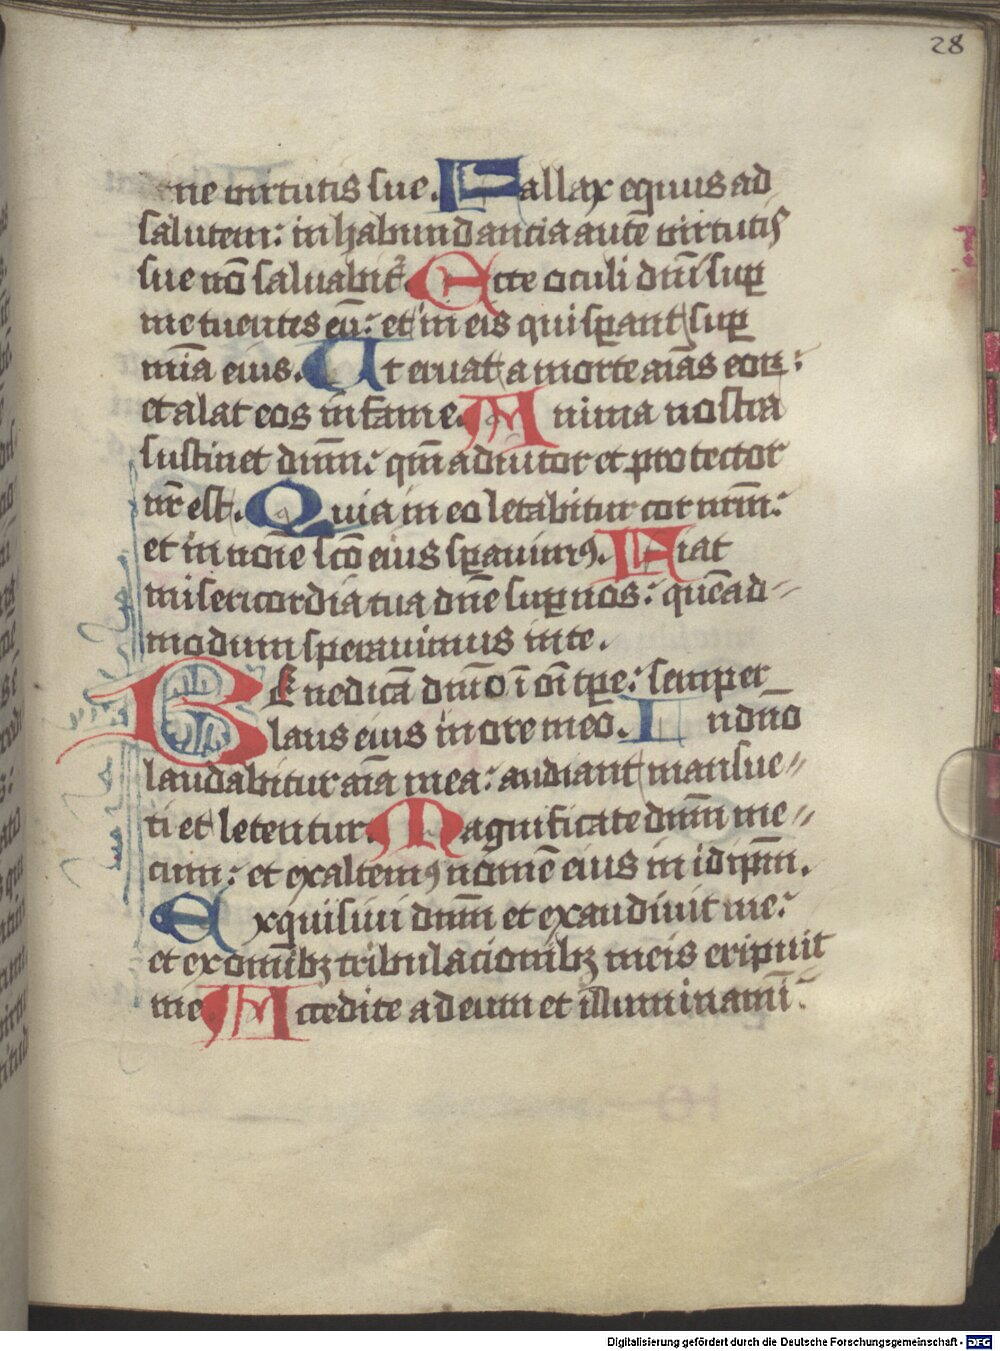 28
ne virtutis sue. Fallax equus ad
salutem: in habundancia autē virtutis
sue nō saluabit᷑. Ecce oculi dn̄i sup̱
metuentes eū: et in eis qui sp̱ant sup̱
mīa eius. Ut eruat a morte aīas eoꝝ:
et alat eos in fame. Anima nostra
sustinet dn̄m: qm̄ adiutor et protector
nr̄ est. Quia in eo letabitur cor nr̄m:
et in noīe scō eius sp̱auimꝰ. Fiat
misericordia tua dn̄e sup̱ nos: quēad-
modum sperauimus in te.
Benedicā dn̄o ī oī tp̱e: semper
laus eius in ore meo. In dn̄o
laudabitur aīa mea: audiant mansue-
ti et letentur. Magnificate dn̄m me-
cum: et exaltemꝰ nomē eius in idip̄m.
Exquisiui dn̄m et exaudiuit me:
et ex omībꝫ tribulacionibꝫ meis eripuit
me. Accedite ad eum et illuminamī:
Digitalisierung gefördert durch die Deutsche Forschungsgemeinschaft - DFG